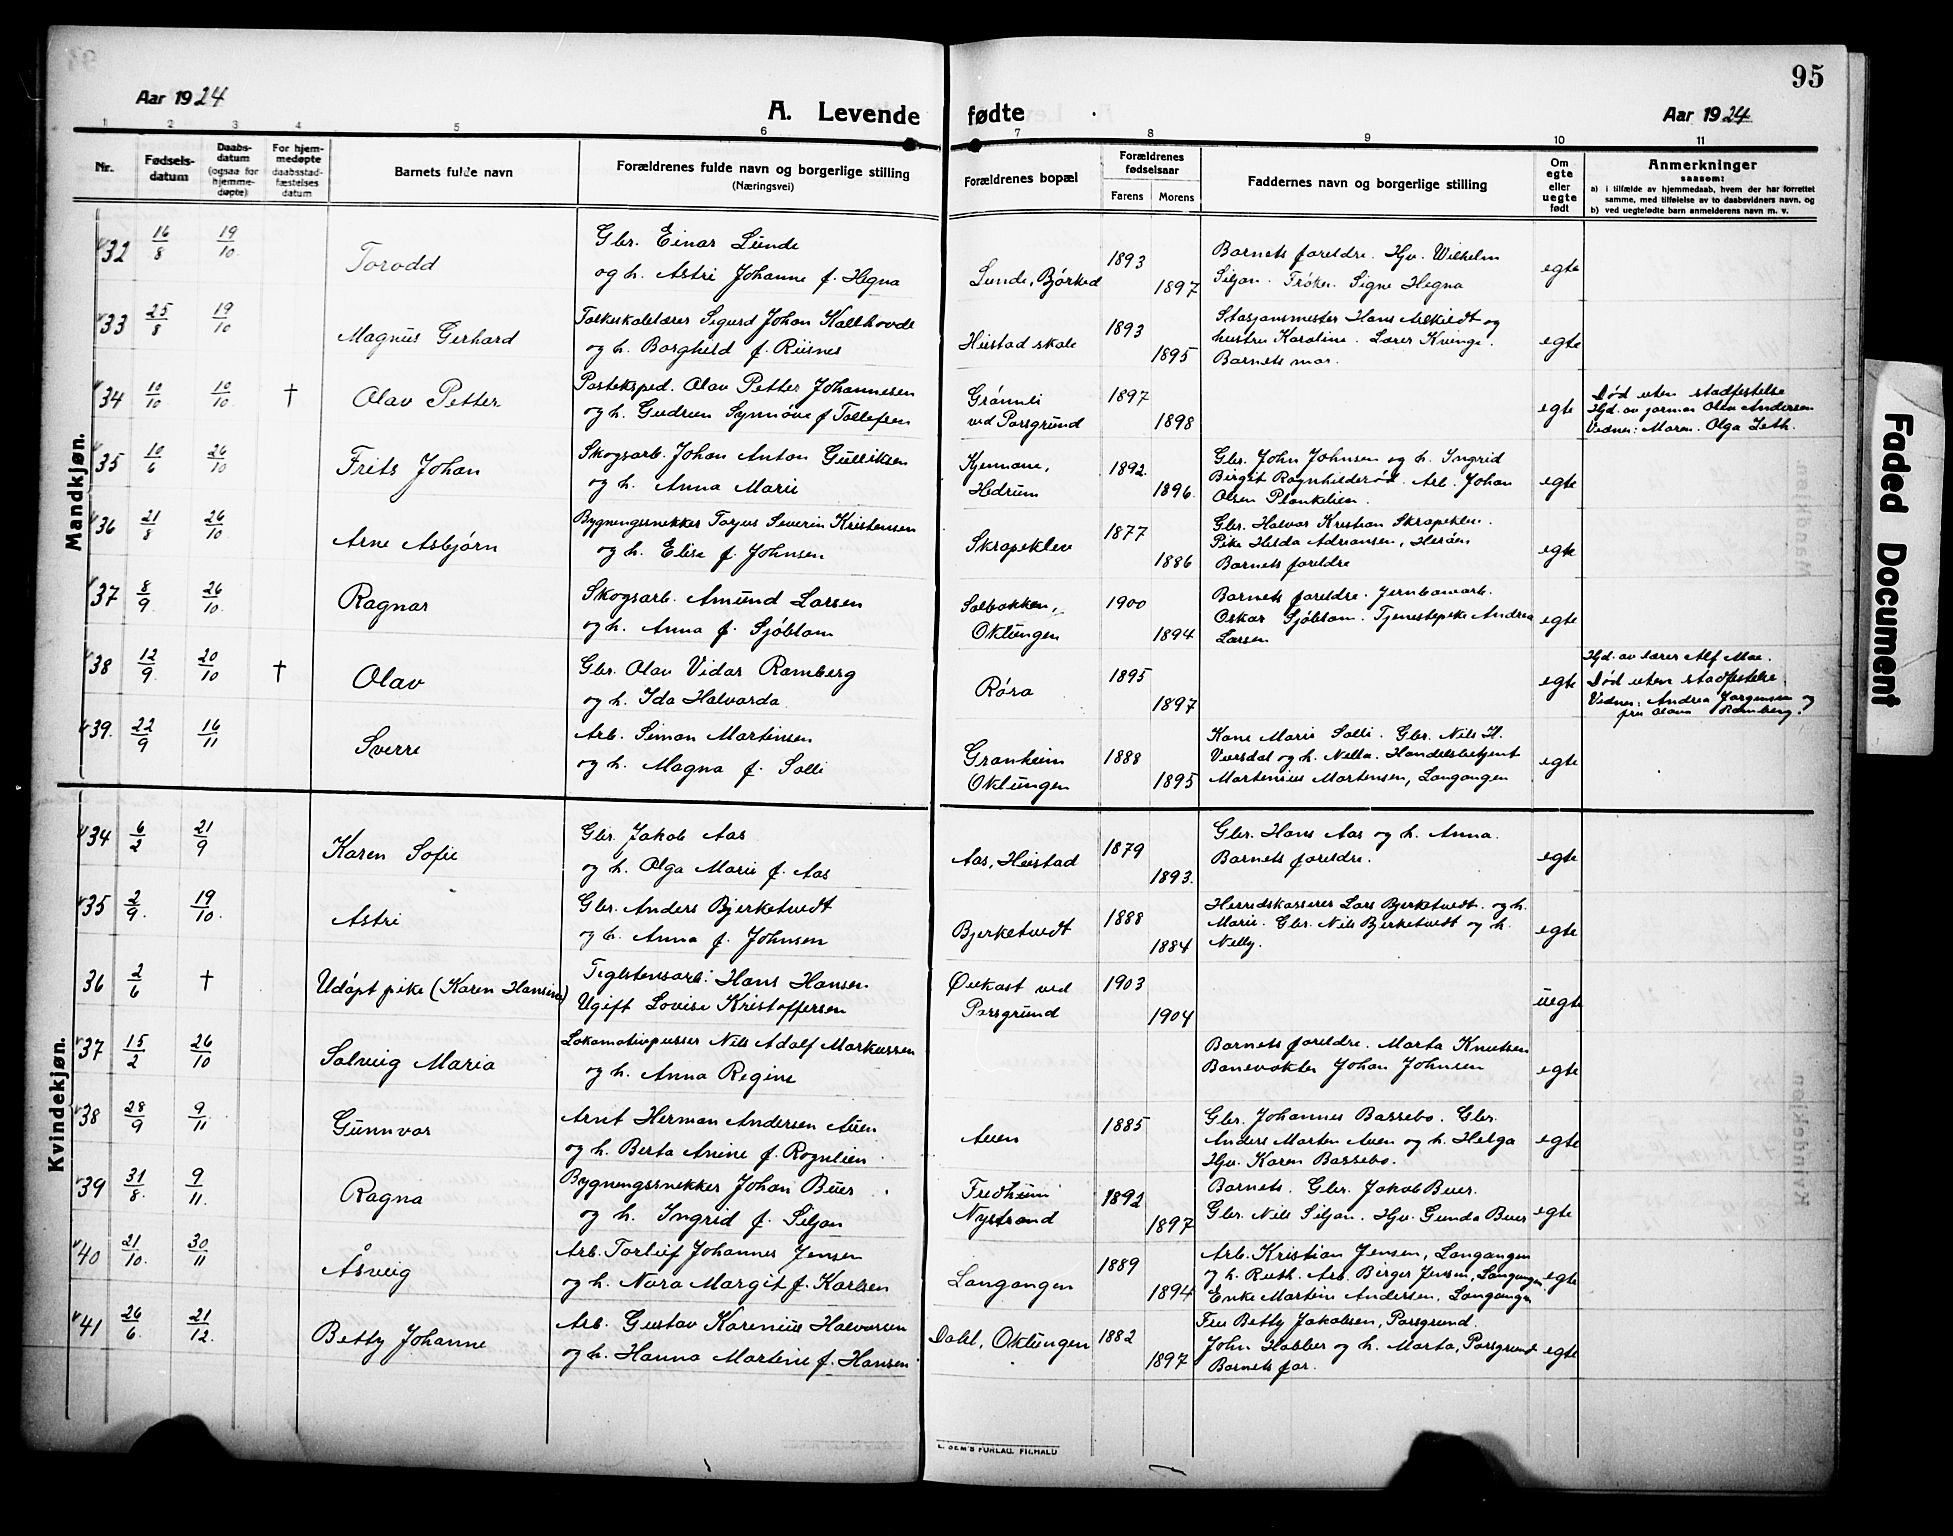 95
Aar 1924
A. Levende fødte
Aar 1924
1 2 3 4 5 6 7 8 9 10 11
Nr.
Fødsels-
datum
Daabs-
datum
(ogsaa for
hjemme-
døpte)
For hjem-
medøpte
daabsstad-
fæstelses
datum
Barnets fulde navn
Forældrenes fulde navn og borgerlige stilling
(Næringsvei)
Forældrenes bopæl
Forældrenes
fødselsaar
Farens Morens
Faddernes navn og borgerlige stilling
Om
egte
eller
uegte
født
Anmerkninger
saasom:
a) i tilfælde av hjemmedaab, hvem der har forrettet
samme, med tilføielse av to daabsvidners navn, og
b) ved uegtefødte barn anmelderens navn m. v.
Mandkjøn.
32 16/8 19/10 Torodd
Gbr. Einar Lunde
og h. Astri Johanne f. Hegna
Lunde, Bjørked 1893 1897
Barnets foreldre. Hjv. Wilhelm
Siljan. Frøken Signe Hegna
egte
33 25/8 19/10 Magnus Gerhard
Folkeskolelærer Sigurd Johan Kallhovde
og h. Borghild f. Riisnes
Heistad skole 1893 1895
Stasjonsmester Hans Arskildt og
hustru Karoline. Lærer Kvinge.
Barnets mor.
egte
34 10/10 10/10 † Olav Petter
Posteksped. Olav Petter Johannesen
og h. Gudrun Synnøve f Tollefsen
Grønli
ved Porsgrund 1897 1898
egte
Død uten stadfestelse
Hjd. av jormor Olea Andersen
Vidner: Maren. Olga Leth.
35 10/6 26/10 Frits Johan
Skogsarb. Johan Anton Gulliksen
og h. Anna Marie
Hedrum 1892 1896
Gbr. John Johnsen og h. Ingrid
Birgit Rognhilderød. Arb. Johan
Olsen Plankelien.
egte
36 21/8 26/10 Arne Asbjørn
Bygningssnekker Torjus Severin Kristensen
og h. Elise f. Johnsen
Skrapeklev 1877 1886
Gbr. Halvor Kristian Skrapeklev.
Pike Hilda Adriansen, Herøen
Barnets foreldre
egte
37 8/9 26/10 Ragnar
Skogsarb. Amund Larsen
og h. Anna f. Sjöblom
Solbakken,
Oklungen 1900 1894
Barnets foreldre. Jernbanearb.
Oskar Sjöblom. Tjenestepike Andrea
Larsen
egte
38 12/9 20/10 † Olav
Gbr. Olav Vidar Ramberg
og h. Ida Halvorda
Røra 1895 1897
egte
Hjd. av lærer Alf Moe.
Død uten stadfestelse.
Vidner: Andrea Jørgensen og
fru Olava Ramberg.
39. 22/9 16/11 Sverre
Arb. Simon Martinsen
og h. Magna f. Solli
Granheim
Oklungen 1888 1895
Kone Marie Solli. Gbr. Nils H.
Versdal og h. Nella. Handelsbetjent
Martinius Martensen, Langangen
egte
Kvindekjøn.
34 6/2 21/9 Karen Sofie
Gbr. Jakob Aas
og h. Olga Marie f. Aas
Aas, Heistad 1879 1893.
Gbr. Hans Aas og h. Anna.
Barnets foreldre.
egte
35 2/9. 19/10 Astri
Gbr. Anders Bjerketvedt
og h. Anna f. Johnsen
Bjerketvedt 1888 1884
Herredskasserer Lars Bjerketvedt. og h.
Marie. Gbr. Nils Bjerketvedt og h.
Nelly.
egte
36 2/6 † Udöpt pike (Karen Hansine)
Teglstensarb: Hans Hansen
Ugift Lovise Kristoffersen
Ørekast ved
Porsgrund 1903 1904
uegte
37 15/2 26/10 Solveig Maria
Lokomotivpusser Nils Adolf Markussen
og h. Anna Regine
Barnets foreldre. Marta Knutsen
Banevokter Johan Johnsen
egte
38 28/9 9/11 Gunnvor
Arnt Herman Andersen Auen
og h. Berta Anine f. Rognlien
Auen 1885
Gbr. Johannes Bassebo. Gbr.
Anders Morten Auen og h. Helga
Hjv. Karen Bassebo.
egte
39 31/8. 9/11. Ragna
Bygningssnekker Johan Buer
og h. Ingrid f. Siljan
Fredheim
Nystrand 1892 1897
Barnets. Gbr. Jakob Buer.
Gbr. Nils Siljan. Hjv. Gunda Buer
egte
40 21/10. 30/11 Åsveig
Arb. Torleif Johannes Jensen
og h. Nora Margit f. Karlsen
Langangen 1889 1894
Arb. Kristian Jensen, Langangen
og h. Ruth. Arb. Birger Jensen, Langangen
Enke Martine Andersen, Langangen
egte
41 26/6. 21/12. Betty Johanne
Arb. Gustav Karenius Halvorsen
og h. Hanna Martine f. Hansen
Dahl, Oklungen 1882 1897
Fru Betty Jakobsen, Porsgrund.
John Habber og h. Marta, Porsgrund
Barnets far.
egte
E. SEM'S FORLAG, FR.HALD
Faded Document